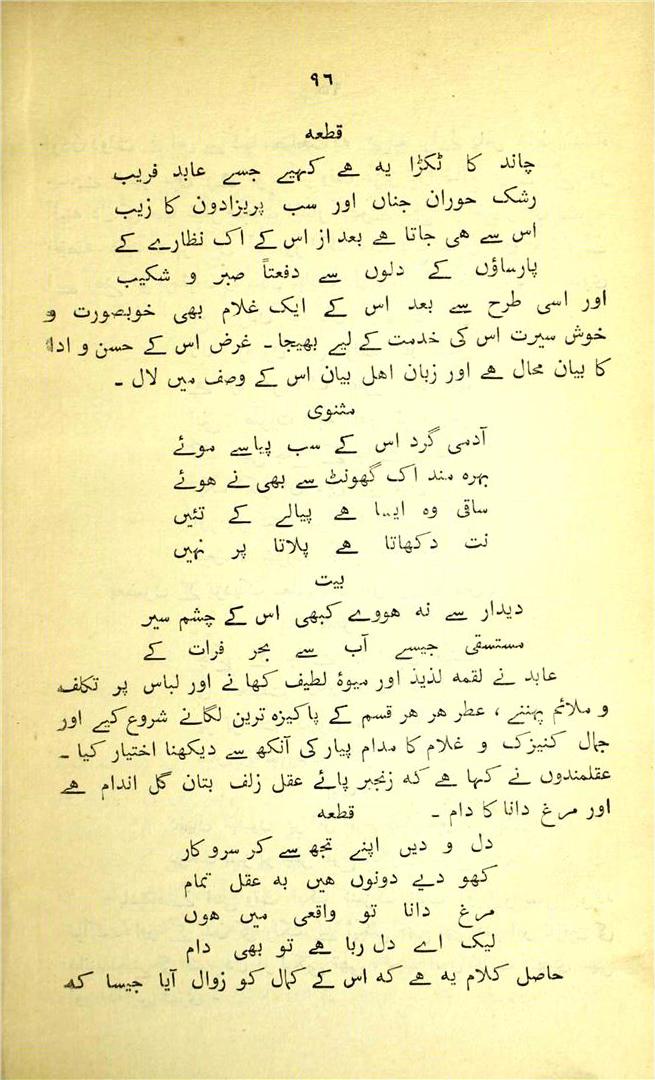 ۹٦
قطعه
چاند کا ٹکڑا یه هے کہیے جسے عابد فریب
رشک حوران جناں اور سب پریزادوں کا زیب
اس سے هی جاتا هے بعد از اس کے اک نظارے کے
پارساؤں کے دلوں سے دفعتاً صبر و شکیب
اور اسی طرح سے بعد اس کے ایک غلام بھی خوبصورت و
خوش سیرت اس کی خدمت کے لیے بھیجا۔ غرض اس کے حسن و ادا
کا بیان محال هے اور زبان اهل بیان اس کے وصف میں لال ۔
مثنوی
آدمی گرد اس کے سب پیاسے موئے
بہره مند اک گھونٹ سے بھی نے هوئے
ساقی وه ایسا هے پیالے کے تئیں
نت دکھاتا هے پلاتا پر نہیں
بیت
دیدار سے نه هووے کبھی اس کے چشم سیر
مستسقی جیسے آب سے بحر فرات کے
عابد نے لقمه لذیذ اور میوۂ لطیف کھانے اور لباس پر تکلف
و ملائم پہننے ، عطر هر هر قسم کے پاکیزه ترین لگانے شروع کیے اور
جمال کنیزک و غلام کا مدام پیار کی آنکھ سے دیکھنا اختیار کیا ۔
عقلمندوں نے کہا هے که زنجیر پائے عقل زلف بتان گل اندام هے
اور مرغ دانا کا دام ۔ قطعه
دل و دیں اپنے تجھ سے کر سروکار
کھو دیے دونوں هیں به عقل تمام
مرغ دانا تو واقعی میں هوں
لیک اے دل ربا هے تو بھی دام
حاصل کلام یه هے که اس کے کمال کو زوال آیا جیسا که